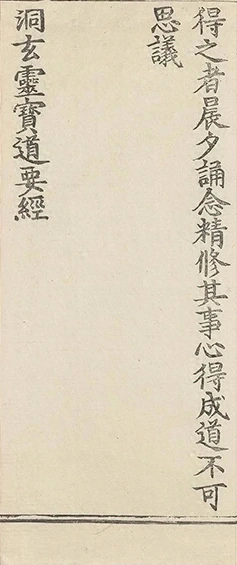 得之者晨夕誦念精修其事心得成道不可
思議
洞玄靈寶道要經